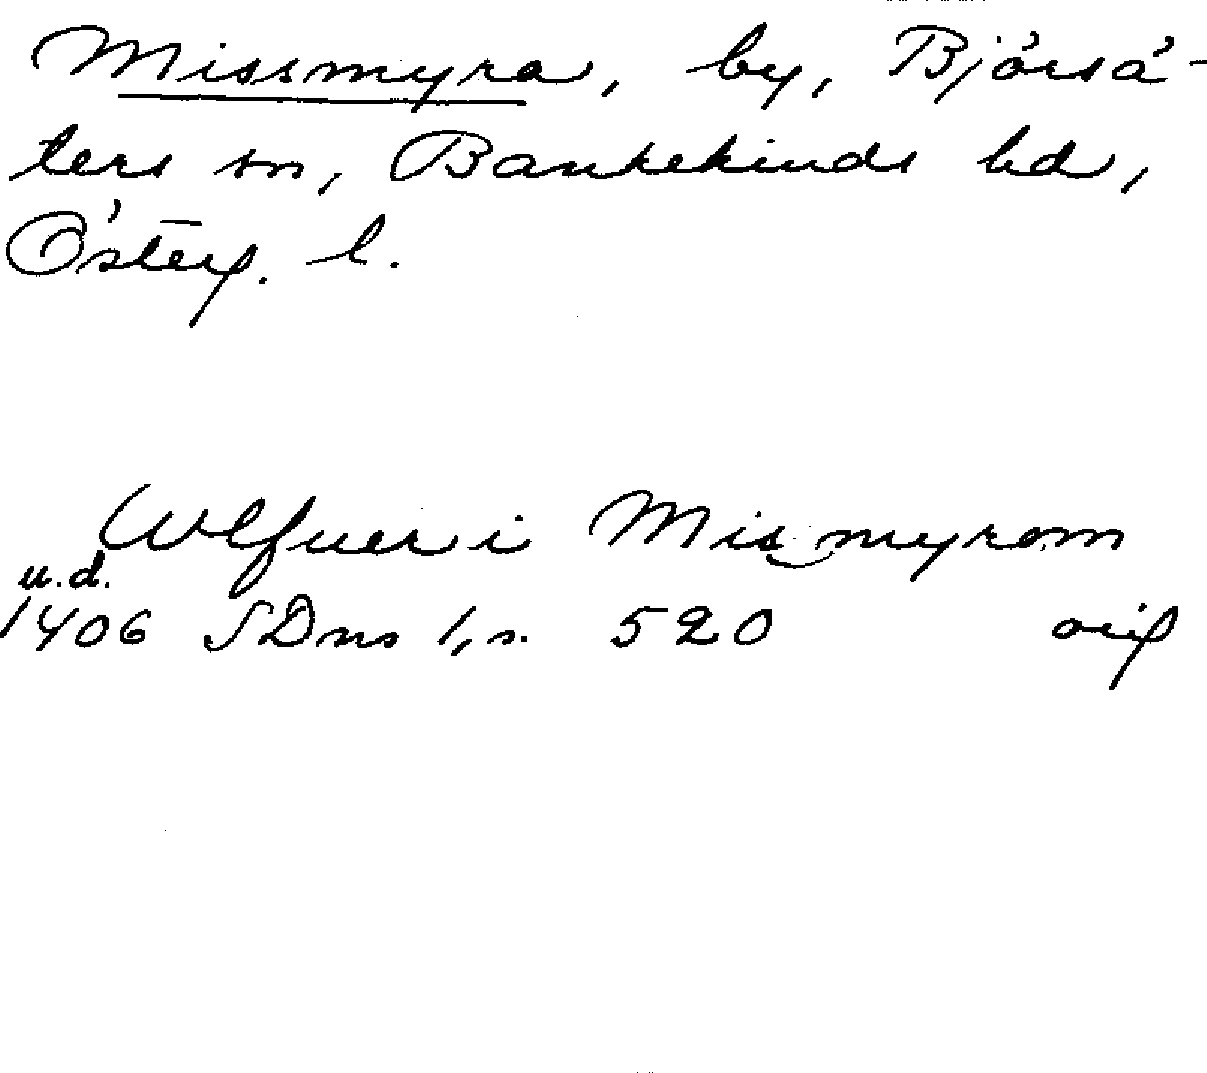 Missmyra, by, Björsä-
ters sn, Bankekinds hd,
Österg. l.
Wlfuer i Mis myrom
u.d.
1406 SDns 1, s. 520 orig